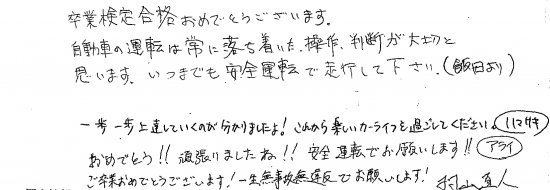 卒業検定合格おめでとうございます。
自動車の運転は常に落ち着いた操作、判断が大切と
思います。いつまでも安全運転で走行して下さい。(飯田より)
一歩一歩上達していくのが分かりましたよ！これから楽しいカーライフを過ごしてください。
おめでとう！！頑張りましたね！！安全運転でお願いします!! アライ
ご卒業おめでとうございます！一生無事故無違反でお願いします！